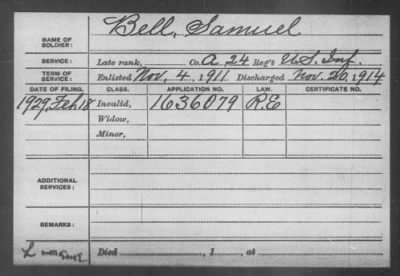 NAME OF SOLDIER: Bell, Samuel
SERVICE: Late rank, Co. A, 24 Reg't U.S. Inf.
TERM OF SERVICE: Enlisted Nov. 4, 1911 Discharged Nov. 20, 1914
DATE OF FILING. CLASS. APPLICATION NO. LAW. CERTIFICATE NO.
1929, Feb. 18 Invalid, 1636079 R.E
Widow,
Minor,
ADDITIONAL SERVICES:
REMARKS:
L
Died , 1 , at